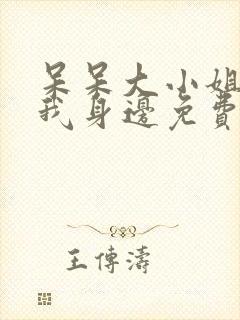 呆呆大小姐
我身邊免費
王傳濤